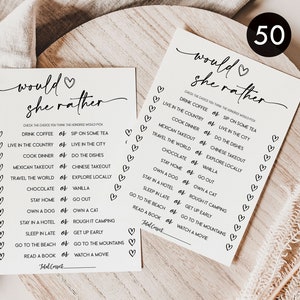 50
would
she rather
CHECK THE CHOICE YOU THINK THE HONOREE WOULD PICK
DRINK COFFEE or SIP ON SOME TEA
LIVE IN THE COUNTRY or LIVE IN THE CITY
COOK DINNER or DO THE DISHES
MEXICAN TAKEOUT or CHINESE TAKEOUT
TRAVEL THE WORLD or EXPLORE LOCALLY
CHOCOLATE or VANILLA
STAY HOME or GO OUT
OWN A DOG or OWN A CAT
STAY IN A HOTEL or ROUGH IT CAMPING
SLEEP IN LATE or GET UP EARLY
GO TO THE BEACH or GO TO THE MOUNTAINS
READ A BOOK or WATCH A MOVIE
Total Correct
would
she rather
DRINK COFFEE or SIP ON SOME TEA
LIVE IN THE COUNTRY or LIVE IN THE CITY
COOK DINNER or DO THE DISHES
MEXICAN TAKEOUT or CHINESE TAKEOUT
TRAVEL THE WORLD or EXPLORE LOCALLY
CHOCOLATE or VANILLA
STAY HOME or GO OUT
OWN A DOG or OWN A CAT
STAY IN A HOTEL or ROUGH IT CAMPING
SLEEP IN LATE or GET UP EARLY
GO TO THE BEACH or GO TO THE MOUNTAINS
READ A BOOK or WATCH A MOVIE
Total Correct